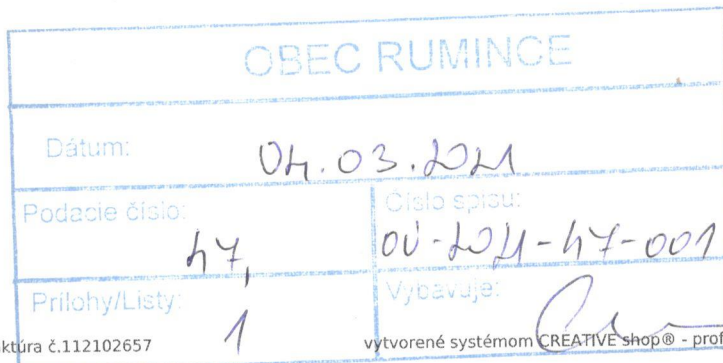 OBEC RUMINCE
Dátum: 04.03.2021
Podacie číslo: 47,
Číslo spisu: OÚ-2021-47-001
Prílohy/Listy: 1
Vybavuje:
ktúra č.112102657
vytvorené systémom CREATIVE shop® - pro